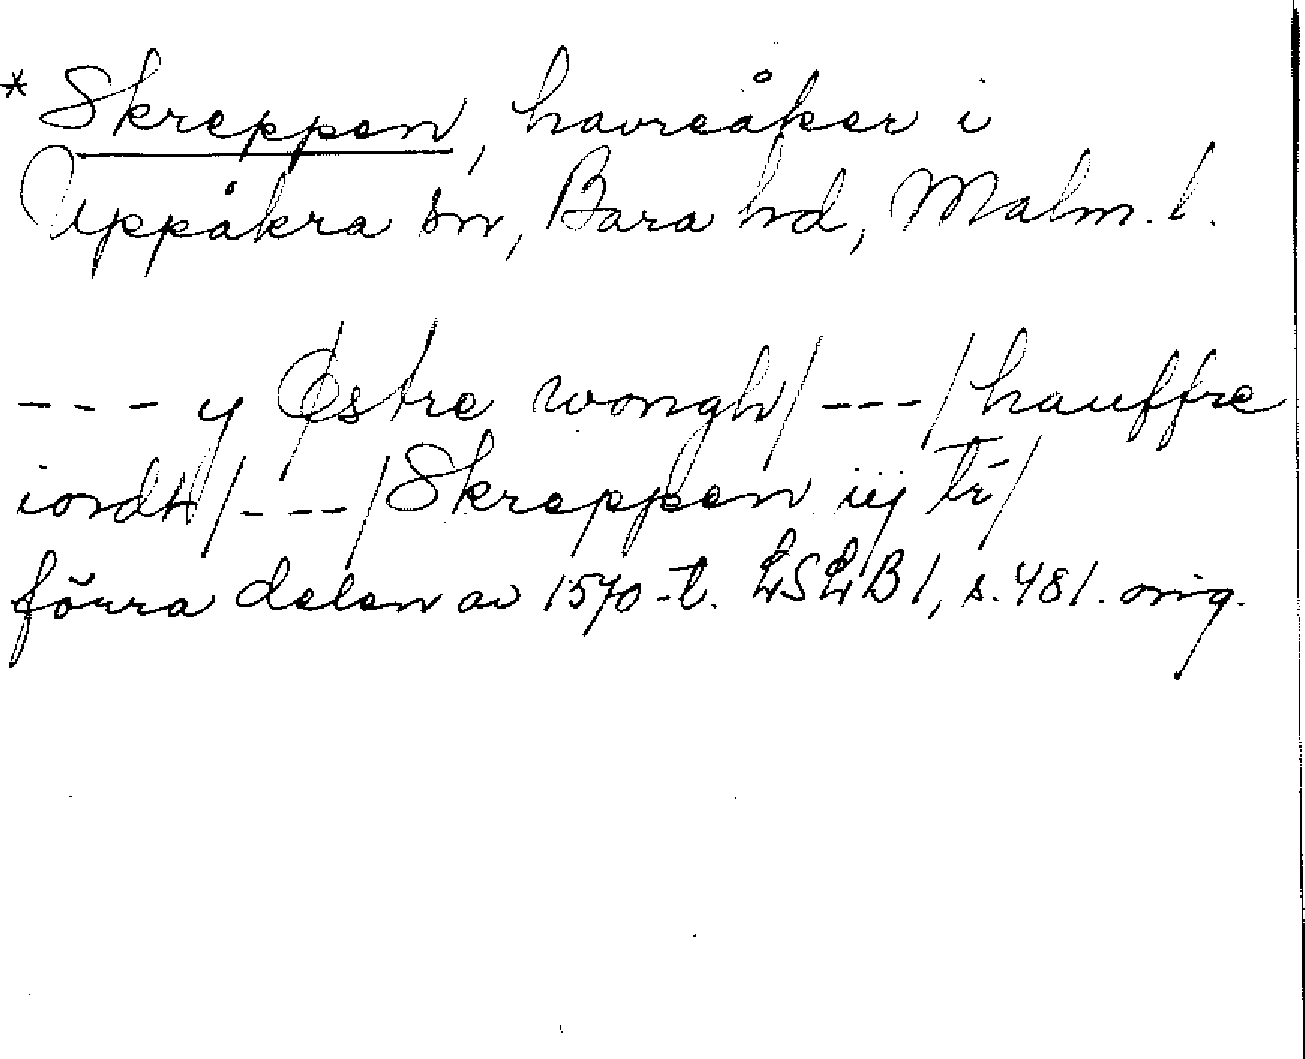 * Skreppen, havreåker i
Uppåkra sn, Bara hd, Malm. l.
--- y Østre wongh/---/hauffre
iordh/---/Skreppen iij tr̄/
förra delen av 1570-t. LSLB1, s. 481. orig.